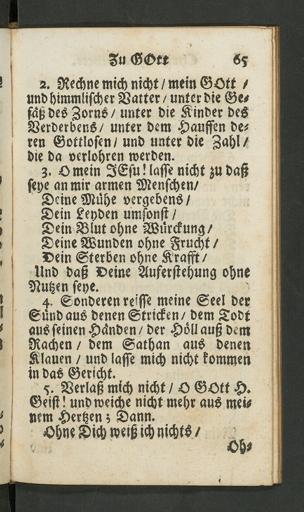 Zu GOtt 65
2. Rechne mich nicht / mein GOtt /
und himmlischer Vatter / unter die Ge-
fäß des Zorns / unter die Kinder des
Verderbens / unter dem Hauffen de-
ren Gottlosen / und unter die Zahl /
die da verlohren werden.
3. O mein JEsu! lasse nicht zu daß
seye an mir armen Menschen /
Deine Mühe vergebens /
Dein Leyden umsonst /
Dein Blut ohne Würckung /
Deine Wunden ohne Frucht /
Dein Sterben ohne Krafft /
Und daß Deine Auferstehung ohne
Nutzen seye.
4. Sonderen reisse meine Seel der
Sünd aus denen Stricken / dem Todt
aus seinen Händen / der Höll auß dem
Rachen / dem Sathan aus denen
Klauen / und lasse mich nicht kommen
in das Gericht.
5. Verlaß mich nicht / O GOtt H.
Geist! und weiche nicht mehr aus mei-
nem Hertzen; Dann.
Ohne Dich weiß ich nichts /
Oh-